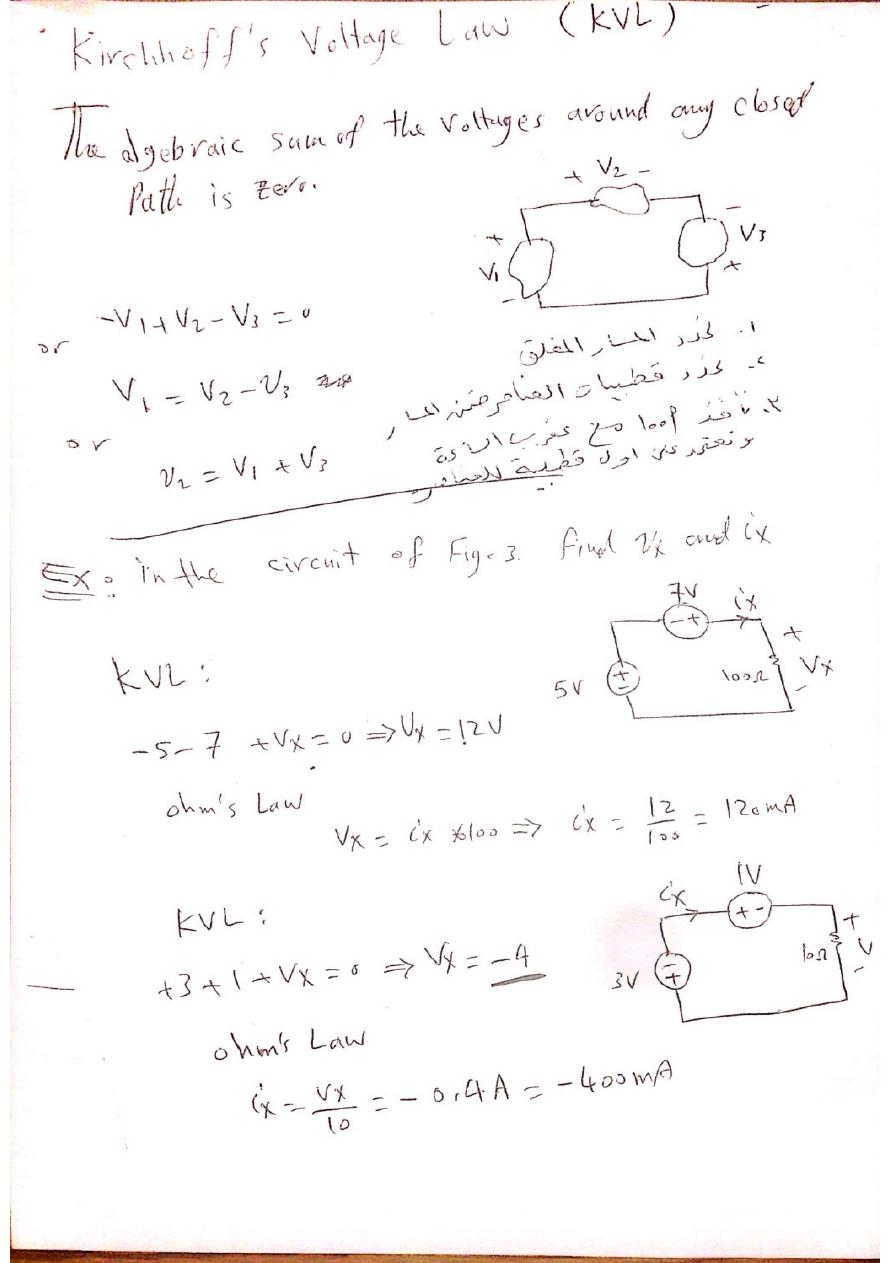 Kirchhoff's Voltage Law (KVL)
The algebraic sum of the voltages around any closed
Path is zero.
+ V2 -
+
V1
-
-
V3
+
-V1 + V2 - V3 = 0
or
V1 = V2 - V3
or
V2 = V1 + V3
١. نحدد المسار المغلق
٢. نحدد قطبيات العناصر ضمن المسار
٣. نأخذ loop مع عقرب الساعة
ونعتمد على اول قطبية للعناصر
Ex: in the circuit of Fig. 3. find Vx and ix
7V
ix
- +
+
5V
+
-
100Ω
Vx
-
KVL:
-5 - 7 + Vx = 0 ⇒ Vx = 12V
ohm's Law
Vx = ix * 100 ⇒ ix = 12/100 = 120mA
1V
ix
+ -
+
3V
-
+
10Ω
V
-
KVL:
+3 + 1 + Vx = 0 ⇒ Vx = -4
ohm's Law
ix = Vx/10 = - 0.4A = -400mA